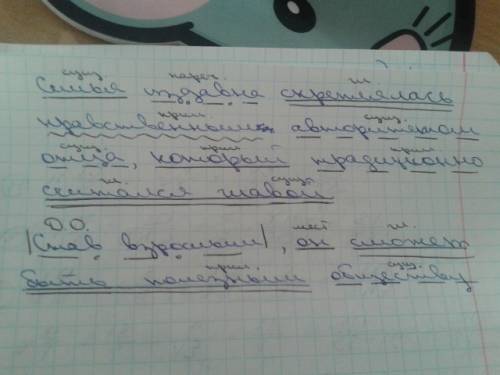 сущ. нареч. гл.
Семья издавна скреплялась
прил. сущ.
нравственным авторитетом
сущ. прил.
отца, который традиционно
гл. сущ.
считался главой
Д.О. мест гл.
|Став взрослым|, он сможет
прил. сущ.
быть полезным обществу